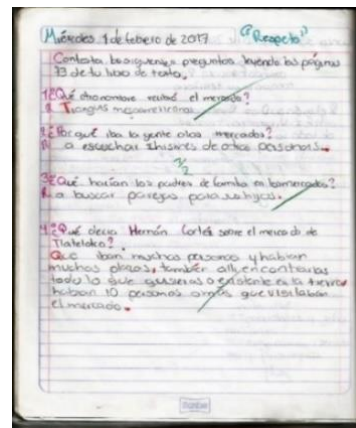 Miércoles 1 de febrero de 2017 "Respeto"
Contesta las siguientes preguntas leyendo las páginas
93 de tu libro de texto.
1¿Qué otro nombre recibió el mercado?
R Tianguis mesoamericanos.
2¿Por qué iba la gente a los mercados?
R a escuchar chismes de otras personas.
3¿Qué hacían los padres de familia en los mercados?
R a buscar parejas para sus hijos.
4¿Qué decía Hernán Cortés sobre el mercado de
Tlatelolco?
Que iban muchas personas y habían
muchas plazas, también allí encontrarías
todo lo que quisieras o existente en la tierra
habían 10 personas o más que visitaban
el mercado.